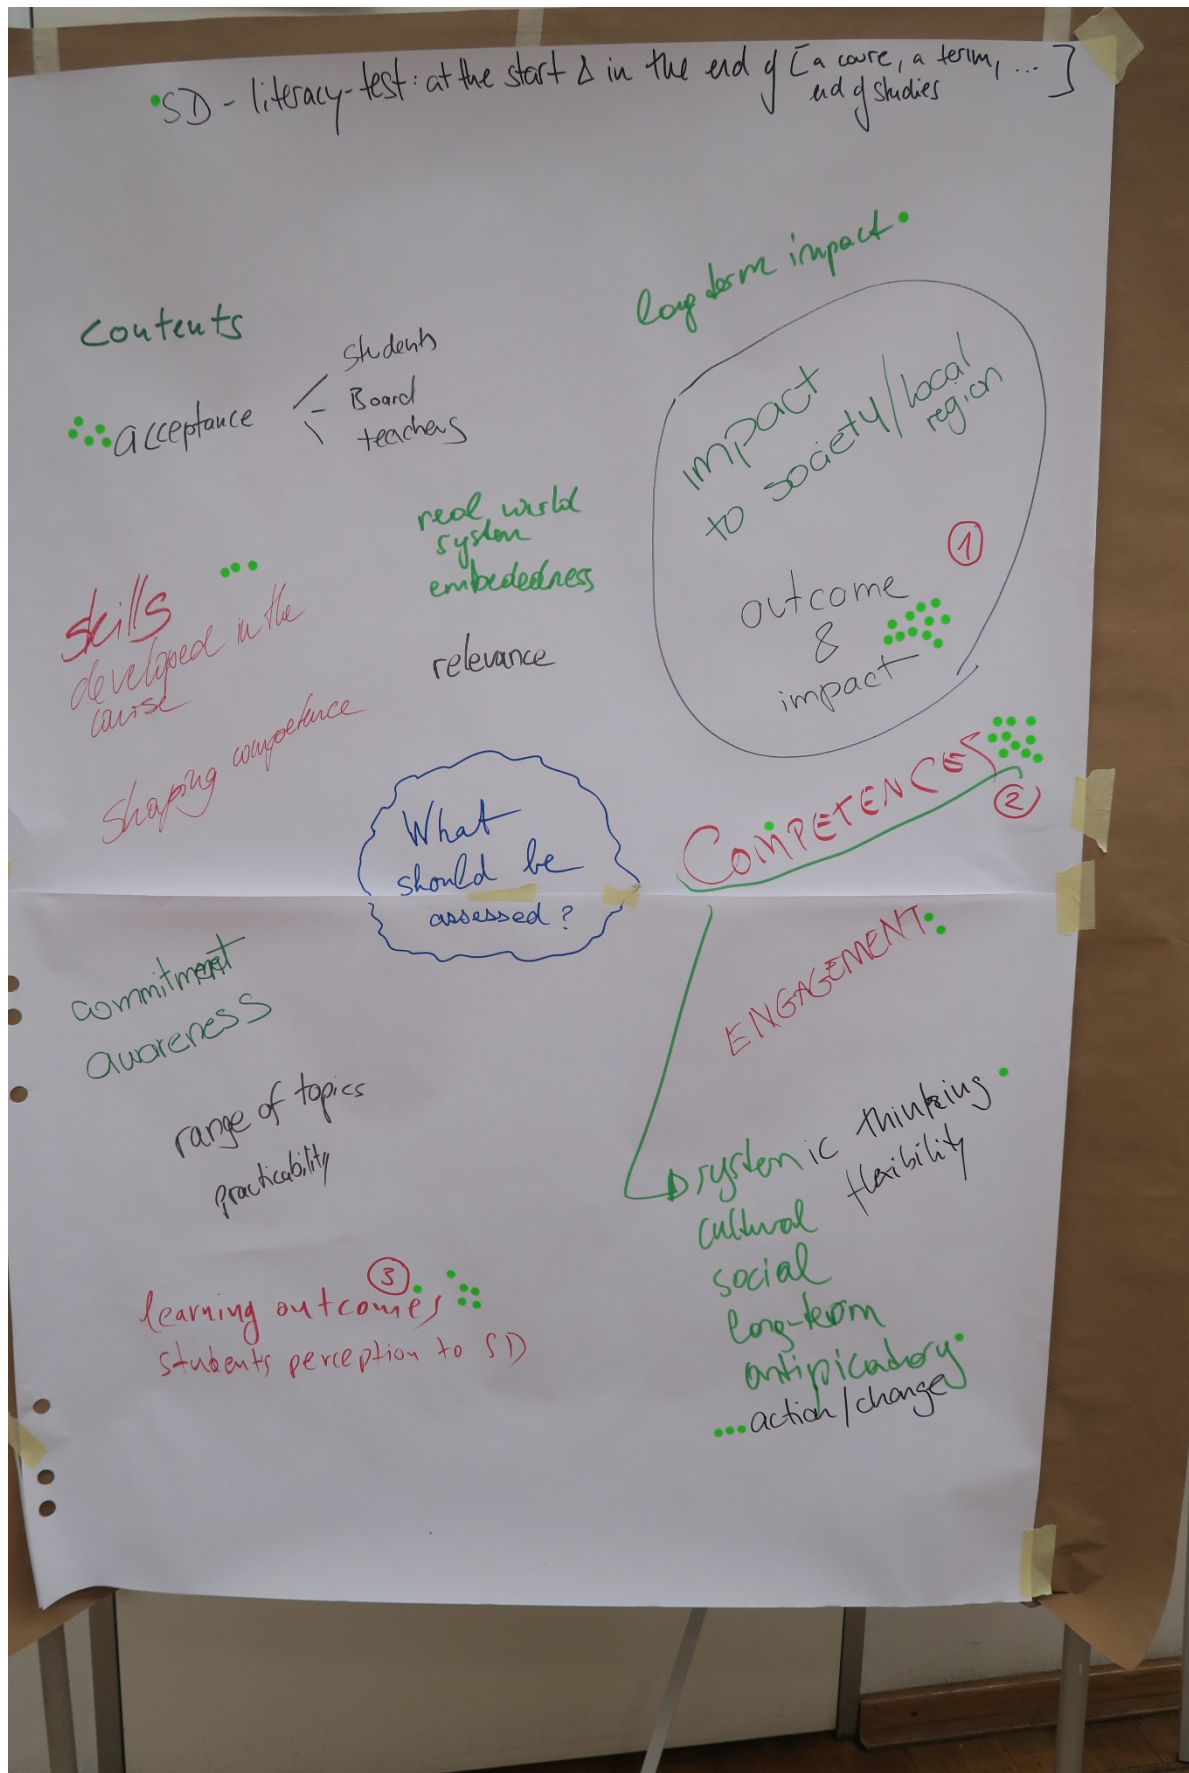 SD - literacy-test: at the start & in the end of [a coure, a term, ...]
end of studies
long term impact
Contents
acceptance
Students
Board
teachers
impact
to society/local
region
1
outcome
&
impact
real world
system
embededness
relevance
skills
developed in the
course
shaping competence
What
should be
assessed?
COMPETENCES
2
ENGAGEMENT
commitment
awareness
range of topics
practicability
systemic thinking
flexibility
cultural
social
long-term
antipicatory
action/change
3
learning outcomes
students perception to SD